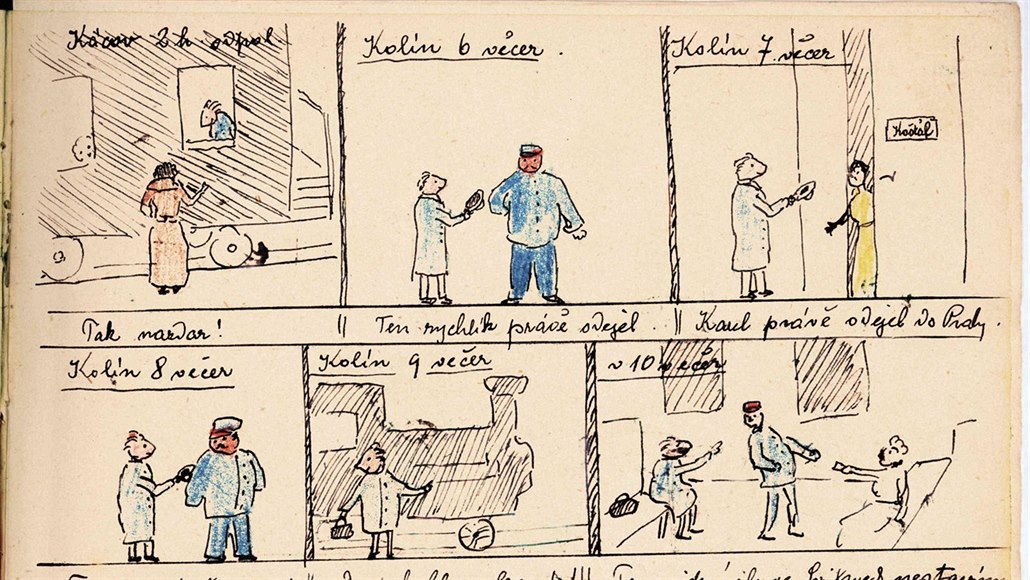 Kácov 2 h odpol
Kolín 6 večer.
Kolín 7 večer
Košťál
Tak nazdar!
Ten rychlík právě odejel.
Karel právě odejel do Prahy.
Kolín 8 večer
Kolín 9 večer
v 10 večer